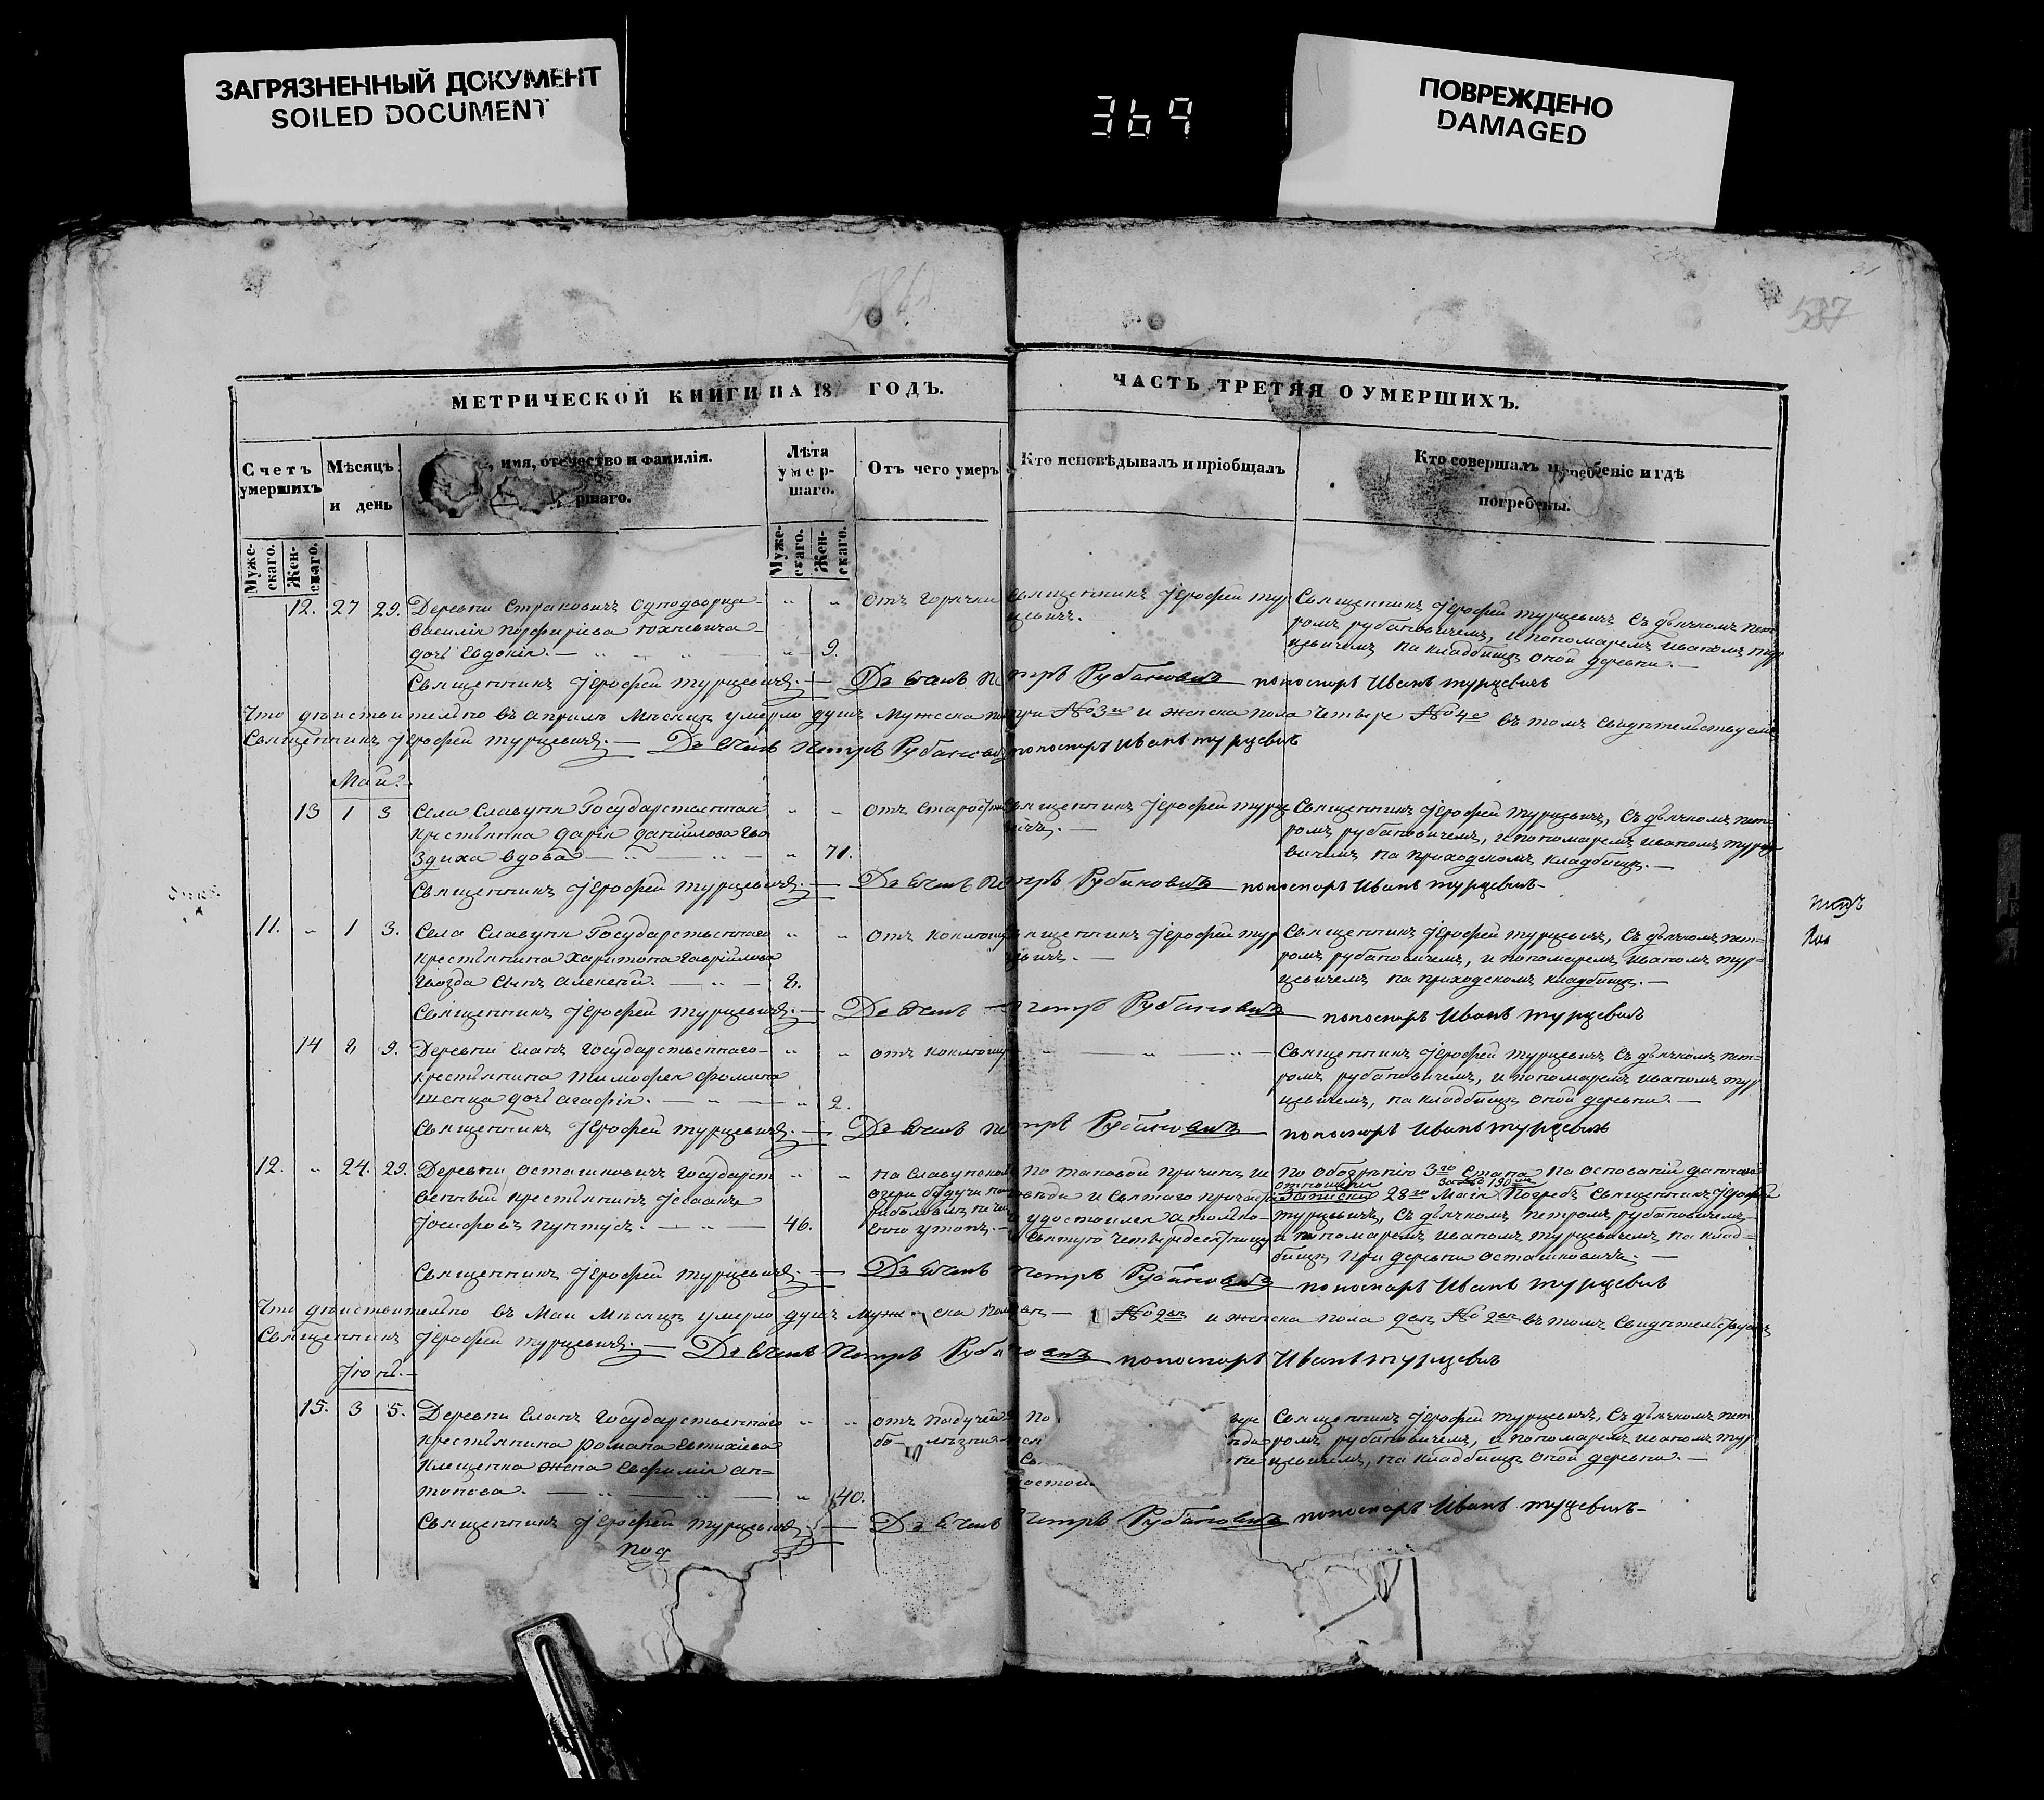 ЗАГРЯЗНЕННЫЙ ДОКУМЕНТ
SOILED DOCUMENT
369
ПОВРЕЖДЕНО
DAMAGED
537
МЕТРИЧЕСКОЙ КНИГИ НА 18 ГОДЪ.
ЧАСТЬ ТРЕТЯЯ О УМЕРШИХЪ.
Счетъ умершихъ
Мѣсяцъ и день
имя, отечество и фамилія.
ршаго.
Лѣта умер-шаго.
Отъ чего умеръ
Кто исповѣдывалъ и пріобщалъ
Кто совершалъ погребеніе и гдѣ
погребены.
Муже-скаго.
Жен-скаго.
Муже-скаго.
Жен-скаго.
12. 27 29. Деревни Страковичъ Однодворца отъ горячки Священникъ Іерофей Тур Священникъ Іерофей Турцевичъ Съ дьячкомъ Пет
Василія Порфиріева Юхневича цевичъ. ромъ Рубановичемъ, и пономаремъ Иваномъ Тур
дочь Евдокія. 9. цевичемъ на кладбищѣ оной деревни.
Священникъ Іерофей Турцевичъ. Дьячекъ Петръ Рубановичъ пономарь Иванъ Турцевичъ
Что дѣйствительно въ апрѣлѣ Мѣсяцѣ умерло душъ Мужеска пола три №3 и женска пола Четыре №4 въ томъ Свидѣтельствуемъ
Священникъ Іерофей Турцевичъ. Дьячекъ Петръ Рубановичъ пономарь Иванъ Турцевичъ
Май.
13 1 3 Села Славупя Государственная отъ старости Священникъ Іерофей Турце Священникъ Іерофей Турцевичъ, Съ дьячкомъ Пет-
крестьянка Дарія Даніилова Гво вичъ. ромъ Рубановичемъ, и пономаремъ Иваномъ Турце
здиха вдова 71. вичемъ на приходскомъ кладбищѣ.
Священникъ Іерофей Турцевичъ. Дьячекъ Петръ Рубановичъ пономарь Иванъ Турцевичъ
11. 1 3. Села Славупя Государственнаго отъ коклюшу Священникъ Іерофей Тур Священникъ Іерофей Турцевичъ, Съ дьячкомъ Пет-
крестьянина Харитона Гавріилова цевичъ. ромъ Рубановичемъ, и пономаремъ Иваномъ Тур-
Гвозда Сынъ Алексей. 8. цевичемъ на приходскомъ кладбищѣ.
Священникъ Іерофей Турцевичъ. Дьячекъ Петръ Рубановичъ пономарь Иванъ Турцевичъ
14 8 9. Деревни Еланъ Государственнаго отъ коклюшу Священникъ Іерофей Турцевичъ Съ дьячкомъ Пет-
крестьянина Тимофея Фомина ромъ Рубановичемъ, и пономаремъ Иваномъ Тур
дочь Агафія. 2. цевичемъ, на кладбищѣ оной деревни.
Священникъ Іерофей Турцевичъ. Дьячекъ Петръ Рубановичъ пономарь Иванъ Турцевичъ
12. 24. 29. Деревни Осташковичъ Государст на Славупском По таковой Причинѣ и По обозрѣнію 3го Стана на основаній
венный крестьянинъ Іоаннъ озери будучи и Святаго отношенія за №190 28го Маія Погребъ Священникъ Іерофей
Іосифовъ Пунтусъ. 46. утопъ. удостоился а Турцевичъ, Съ дьячкомъ Петромъ Рубановичемъ
Святую Четыредесятницу и пономаремъ Иваномъ Турцевичемъ на клад-
бищѣ при деревни Осташковичъ.
Священникъ Іерофей Турцевичъ. Дьячекъ Петръ Рубановичъ пономарь Иванъ Турцевичъ
Что дѣйствительно въ Маи Мѣсяцѣ умерло душъ мужеска пола два №2 и женска пола два №2 въ томъ Свидѣтельствуемъ
Священникъ Іерофей Турцевичъ. Дьячекъ Петръ Рубановичъ пономарь Иванъ Турцевичъ
Іюнь.
15. 3 5. Деревни Еланъ Государственнаго отъ падучей По Священникъ Іерофей Турцевичъ, Съ дьячкомъ Пет
крестьянина Романа Евтихіева бо- лѣзни ромъ Рубановичемъ, и пономаремъ Иваномъ Тур
Клещенка жена Евфимія Ан= цевичемъ, на кладбищѣ оной деревни.
тонова. 40.
Священникъ Іерофей Турцевичъ. Дьячекъ Петръ Рубановичъ пономарь Иванъ Турцевичъ